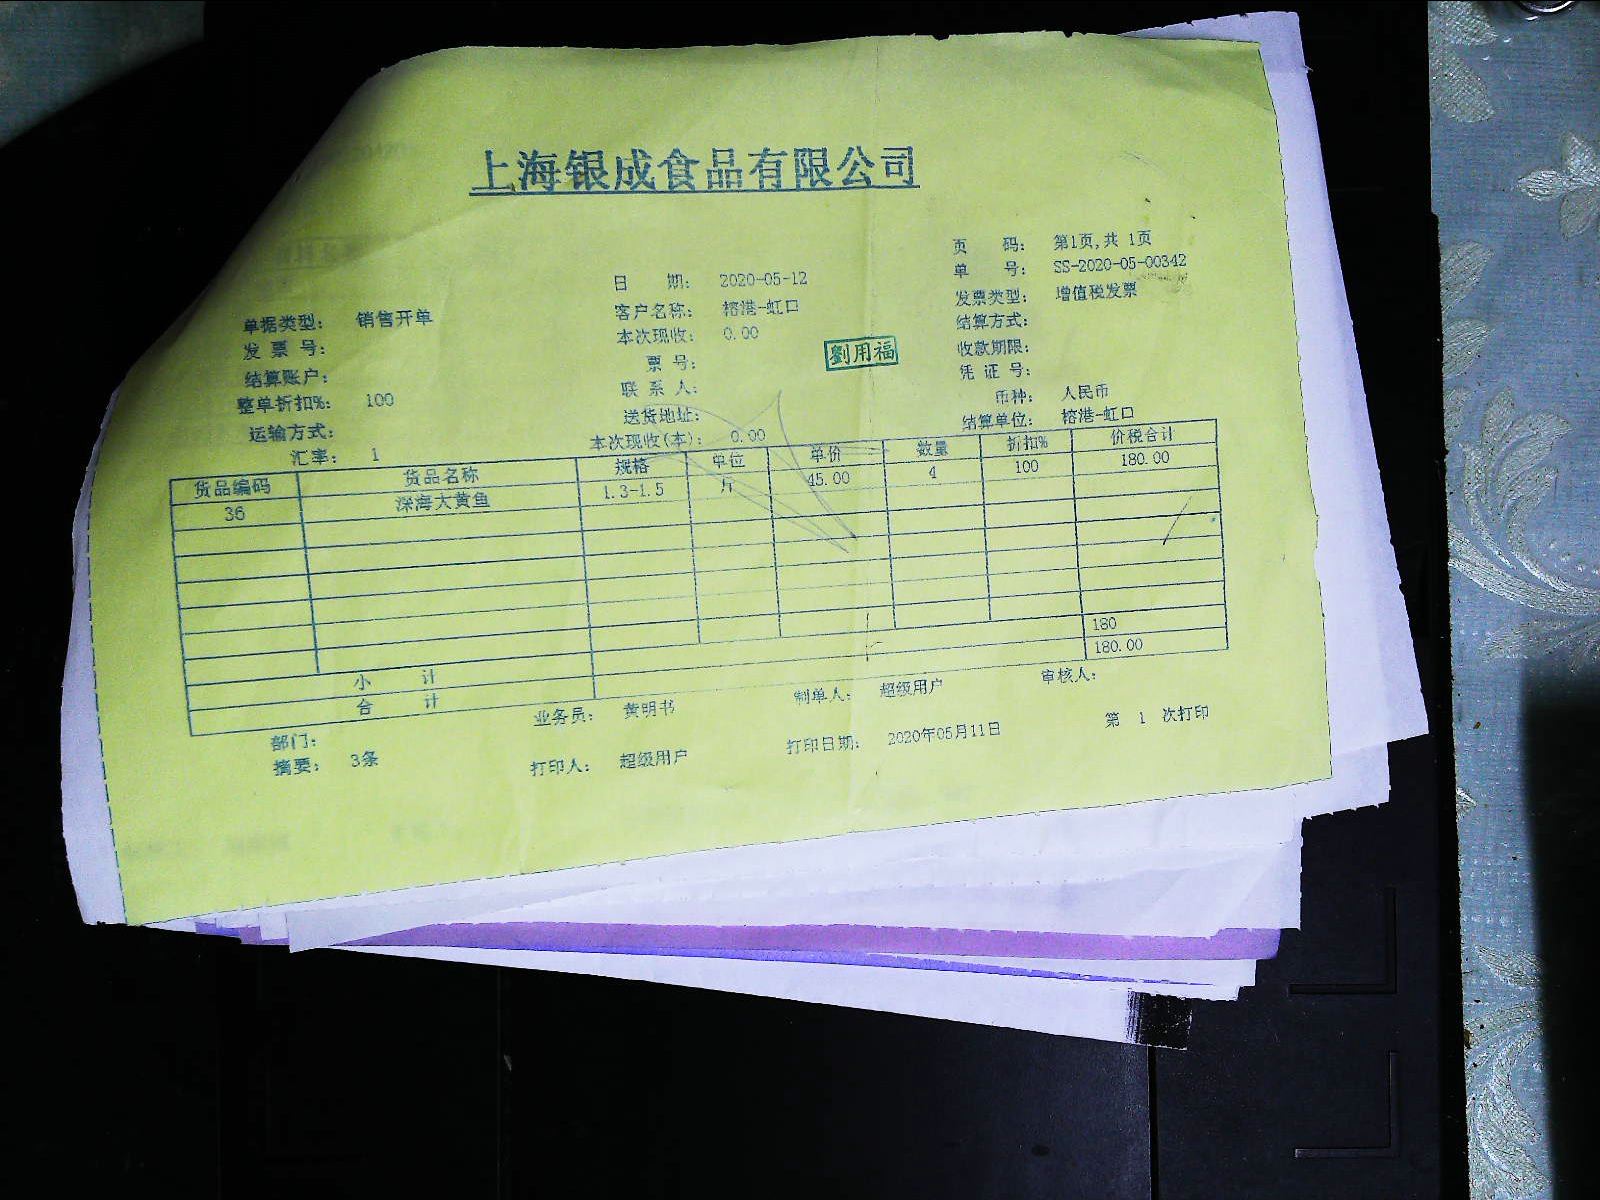 上海银成食品有限公司
页 码： 第1页,共 1页
日 期： 2020-05-12 单 号： SS-2020-05-00342
单据类型： 销售开单 客户名称： 榕港-虹口 发票类型： 增值税发票
发 票 号： 本次现收： 0.00 结算方式：
结算账户： 票 号： 劉用福 收款期限：
整单折扣%： 100 联 系 人： 凭 证 号：
运输方式： 送货地址： 币种： 人民币
汇率： 1 本次现收(本)： 0.00 结算单位： 榕港-虹口
货品编码 货品名称 规格 单位 单价 数量 折扣% 价税合计
36 深海大黄鱼 1.3-1.5 斤 45.00 4 100 180.00
小 计 180
合 计 180.00
部门： 业务员： 黄明书 制单人： 超级用户 审核人：
摘要： 3条 打印人： 超级用户 打印日期： 2020年05月11日 第 1 次打印